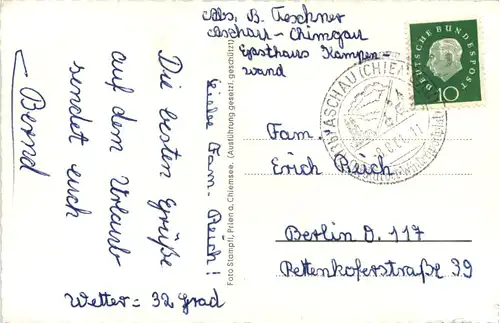 Abs. B. Teschner
Aschau-Chimgau
Gasthaus Kampen-
wand
Liebe Fam. Reich!
Die besten Grüße
auf dem Urlaub
sendet euch
Bernd
Wetter = 32 grad
Foto Stampfl, Prien a. Chiemsee. (Ausführung gesetzl. geschützt)
DEUTSCHE BUNDESPOST
10
ASCHAU (CHIEM
Fam.
Erich Reich
Berlin O. 117
Rettenkoferstraße 39